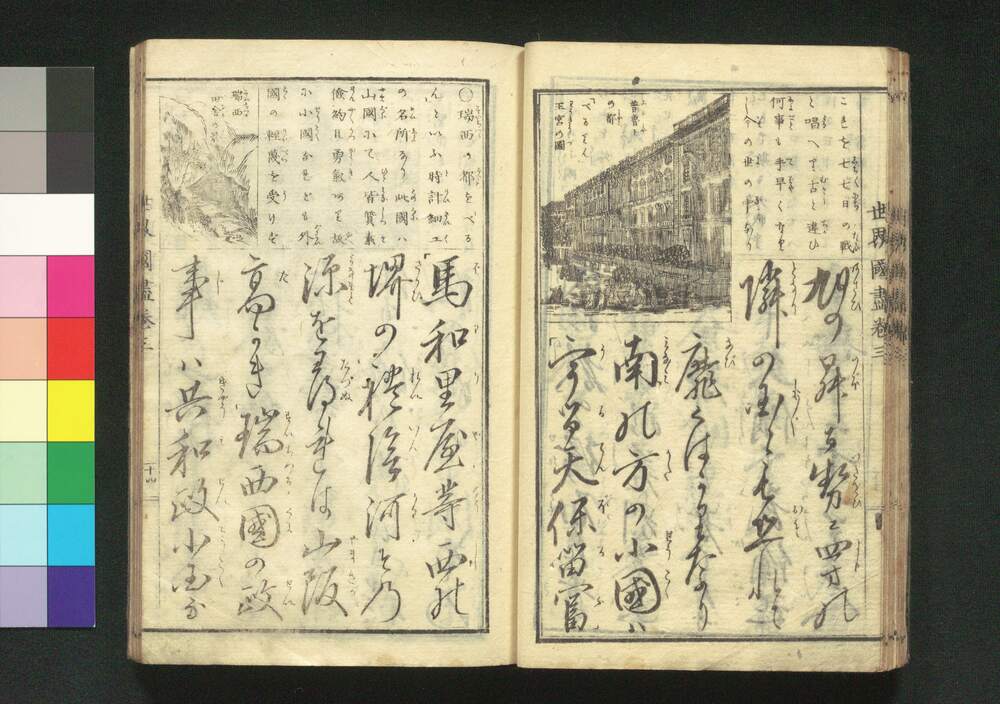 世界國盡卷三
これを七七日の戰
と唱へて古と違ひ
何事も手早くなる
し今の世の中なり
普魯士
の都
べるりん
王宮の圖
旭の昇る勢に四方の
隣の国々も恐れて
靡くはかりなり
南の方の小國ハ
宇留天保留富
〇瑞西の都をべる
んといふ時計細工
の名所なり此國ハ
山國にて人皆質素
儉約且勇敢なる故
に小國なれども外
國の輕蔑を受けず
瑞西
馬和里屋等西の
堺の禮陰河その
源を尋れは山阪
高き瑞西國の政
事ハ共和政小国な
十四